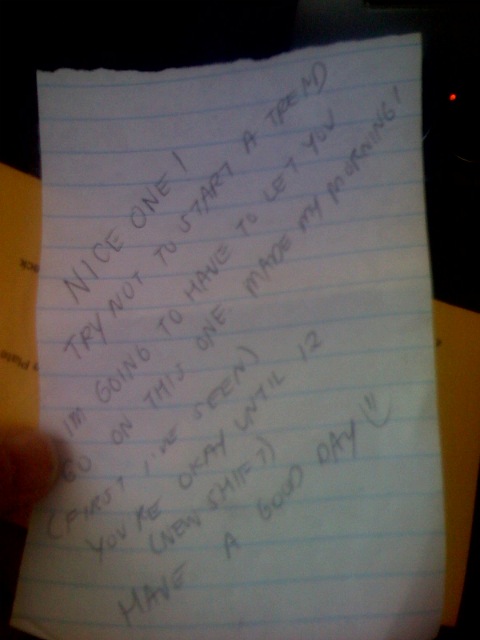 NICE ONE!
TRY NOT TO START A TREND
I'M GOING TO HAVE TO LET YOU
GO ON THIS ONE. MADE MY MORNING!
(FIRST I'VE SEEN)
YOU'RE OKAY UNTIL 12
(NEW SHIFT)
HAVE A GOOD DAY
Plate